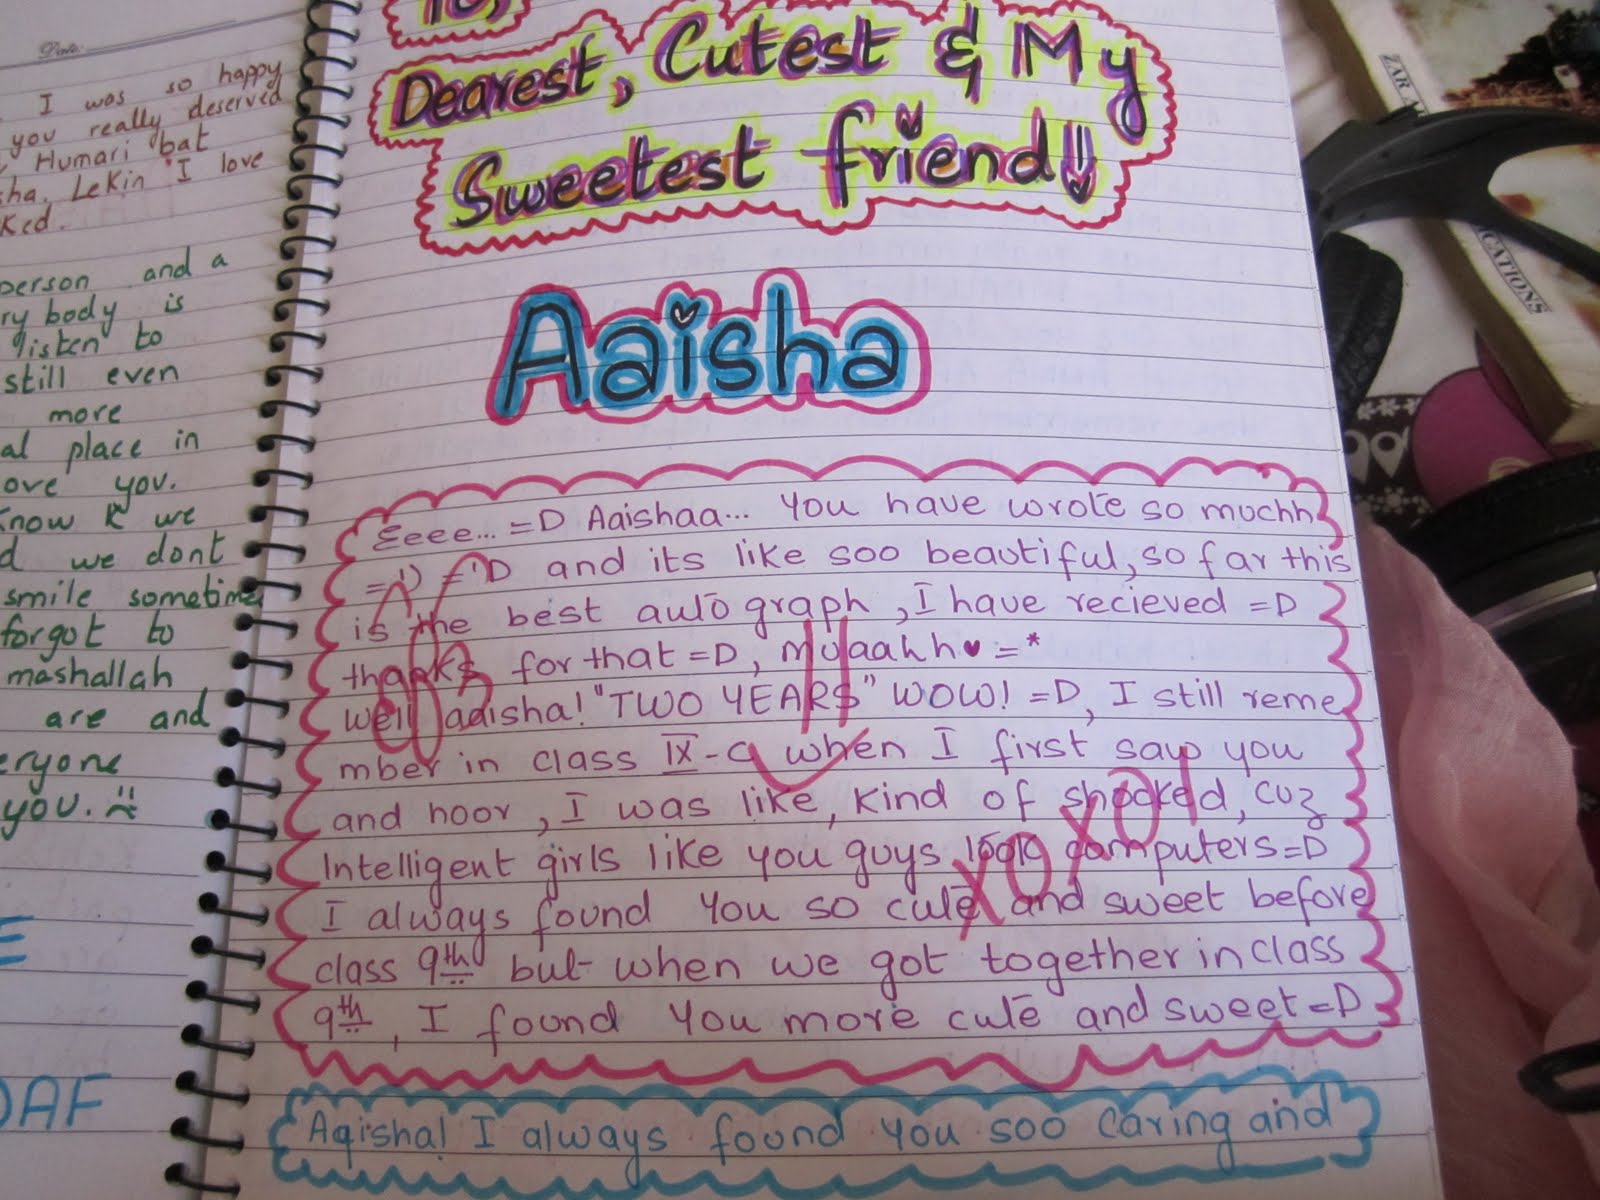 Date:
I was so happy
you really deserved
Humari bat
sha. LeKin "I love
Ked.
person and a
ry body is
listen to
still even
more
al place in
ove you.
Know K we
d we dont
smile sometime
forgot to
mashallah
are and
eryone
you.
E
DAF
To,
Dearest, Cutest & My
Sweetest friend!
Aaisha
Eeee... =D Aaishaa... You have wrote so muchh
='D ='D and its like soo beautiful, so far this
is the best autograph, I have recieved =D
thanks for that =D, muaahh♥ =*
well aaisha! "TWO YEARS" WOW! =D, I still reme
mber in class IX-C when I first saw you
and noor, I was like, kind of shocked, cuz
Intelligent girls like you guys, took computers =D
I always found you so cute and sweet before
class 9th but when we got together in class
9th, I found you more cute and sweet =D
XOXO
Aaisha! I always found you soo caring and
ZAR
ICATIONS